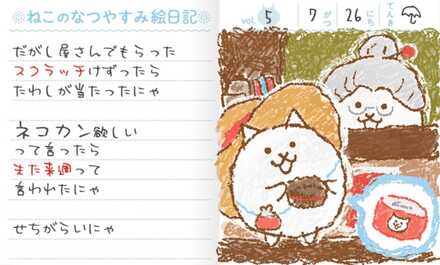 ねこのなつやすみ絵日記
VOL. 5 7がつ 26にち てんき
だがし屋さんでもらった
スクラッチけずったら
たわしが当たったにゃ
ネコカン欲しい
って言ったら
また来週って
言われたにゃ
せちがらいにゃ